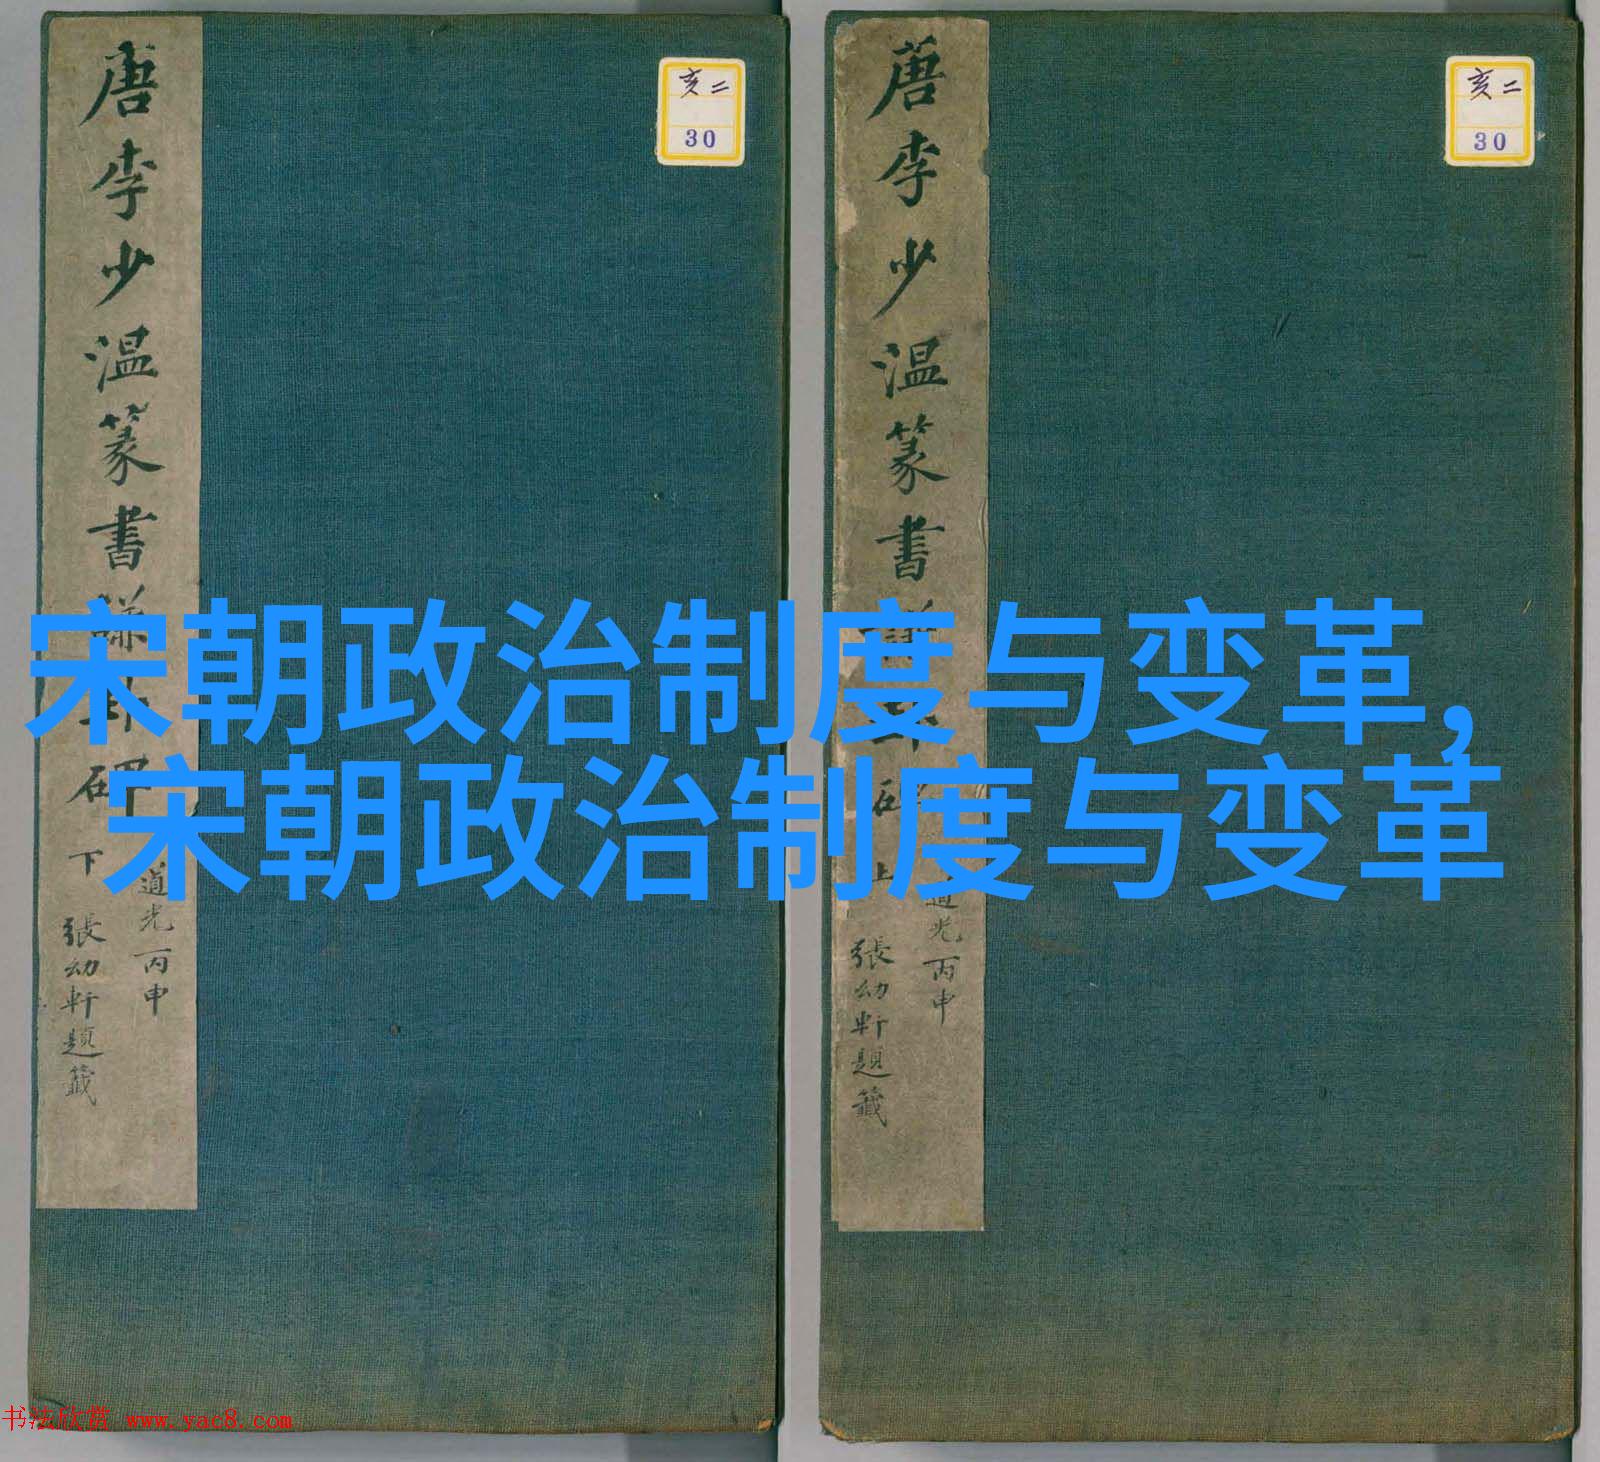 唐李少温篆書謙卦碑 下
道光丙申
張幼軒題籤
亥二
30
唐李少温篆書謙卦碑 上
道光丙申
張幼軒題籤
亥二
30
宋朝政治制度与变革,
宋朝政治制度与变革
书法欣赏 www.yac8.com